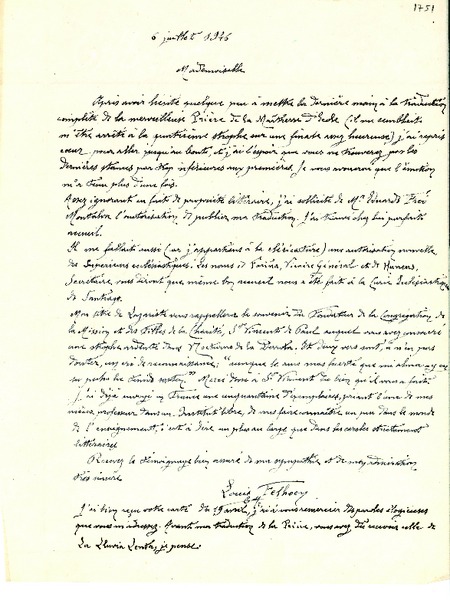 1751
6 juillet 1946
Mademoiselle
Après avoir hésité quelque peu à mettre la dernière main à la traduction
complète de la merveilleuse Prière de la Maîtresse d'Ecole (il me semblait
m'être arrêté à la quatrième strophe sur une finale assez heureuse) j'ai repris
cœur pour aller jusqu'au bout, et j'ai l'espoir que vous ne trouverez pas les
dernières stances par trop inférieures aux premières. Je vous avouerai que l'émotion
m'a tenu plus d'une fois.
Assez ignorant en fait de propriété littéraire, j'ai sollicité de Mr. Eduardo
Montalva l'autorisation de publier ma traduction. J'ai trouvé chez lui parfait
accueil.
Il me fallait aussi (car j'appartiens à la cléricature) une autorisation
des Supérieurs ecclésiastiques. Les noms de Fariña, Vicaire Général et de
Secrétaire, vous diront que même bon accueil nous a été fait à la Curie Ecclésiastique
de Santiago.
Mon titre de Lazariste vous rappellera le souvenir du Fondateur de la Congrégation de
la Mission et des Filles de la Charité, St Vincent de Paul auquel vous avez consacré
une strophe ardente dans Nocturno de la Derrota. Ces deux vers sont, à n'en pas
douter, un cri de reconnaissance; "aunque le
su pecho
Merci donc à St Vincent du bien qu'il vous a fait.
J'ai déjà envoyé en France une cinquantaine d'exemplaires, priant l'une de mes
nièces, professeur dans un Institut libre, de me faire connaître un peu dans le monde
de l'enseignement, c'est à dire un peu au large que dans les cercles strictement
littéraires.
Recevez le témoignage bien assuré de ma sympathie et de mon admiration
très sincère
Louis
J'ai bien reçu votre carte du 19 avril, j'ai à vous remercier des paroles élogieuses
que vous m'adressez. Avant ma traduction de la Prière, vous avez dû recevoir celle de
La Lluvia Lenta, je pense.